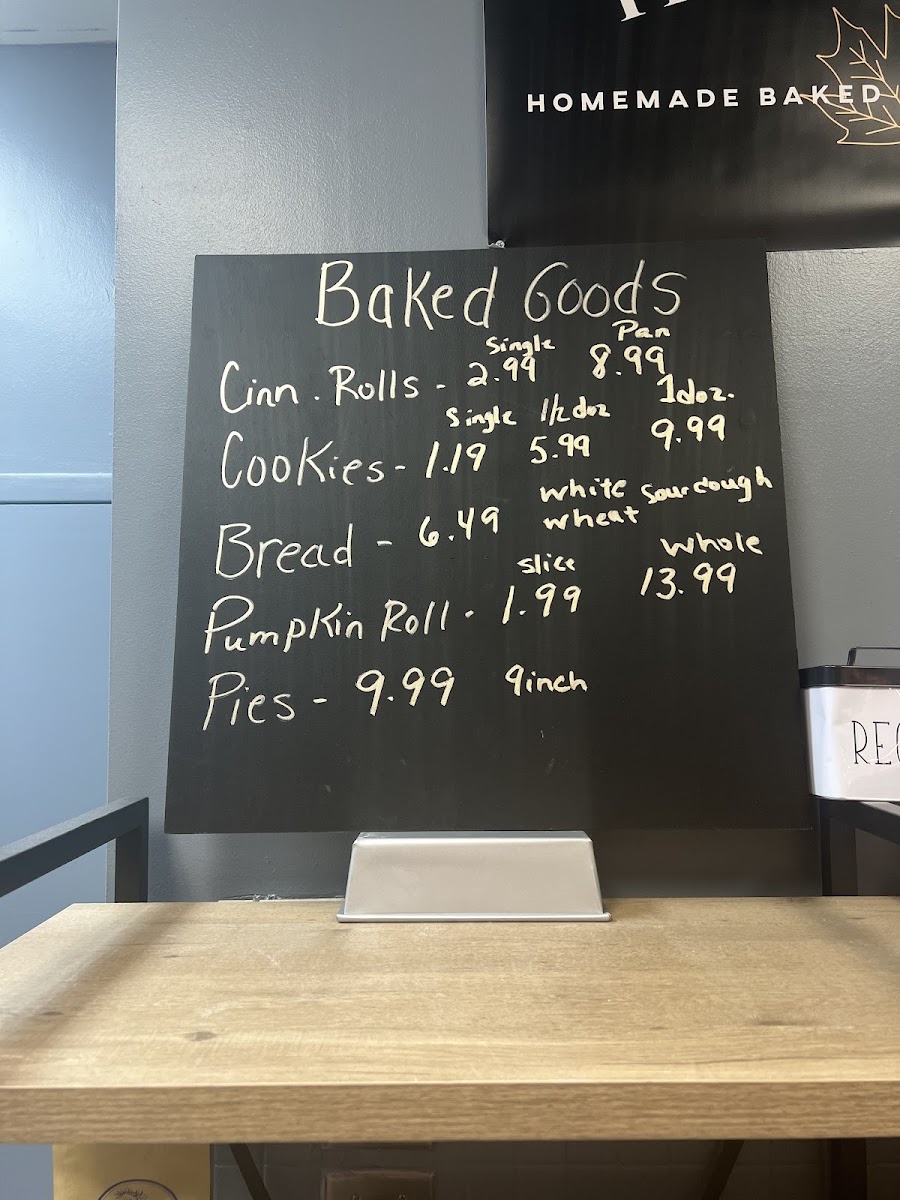 HOMEMADE BAKED
Baked Goods
Single Pan
Cinn. Rolls - 2.99 8.99
Single 1/2 doz 1doz.
Cookies - 1.19 5.99 9.99
white sourdough
Bread - 6.49 wheat
slice whole
Pumpkin Roll - 1.99 13.99
Pies - 9.99 9inch